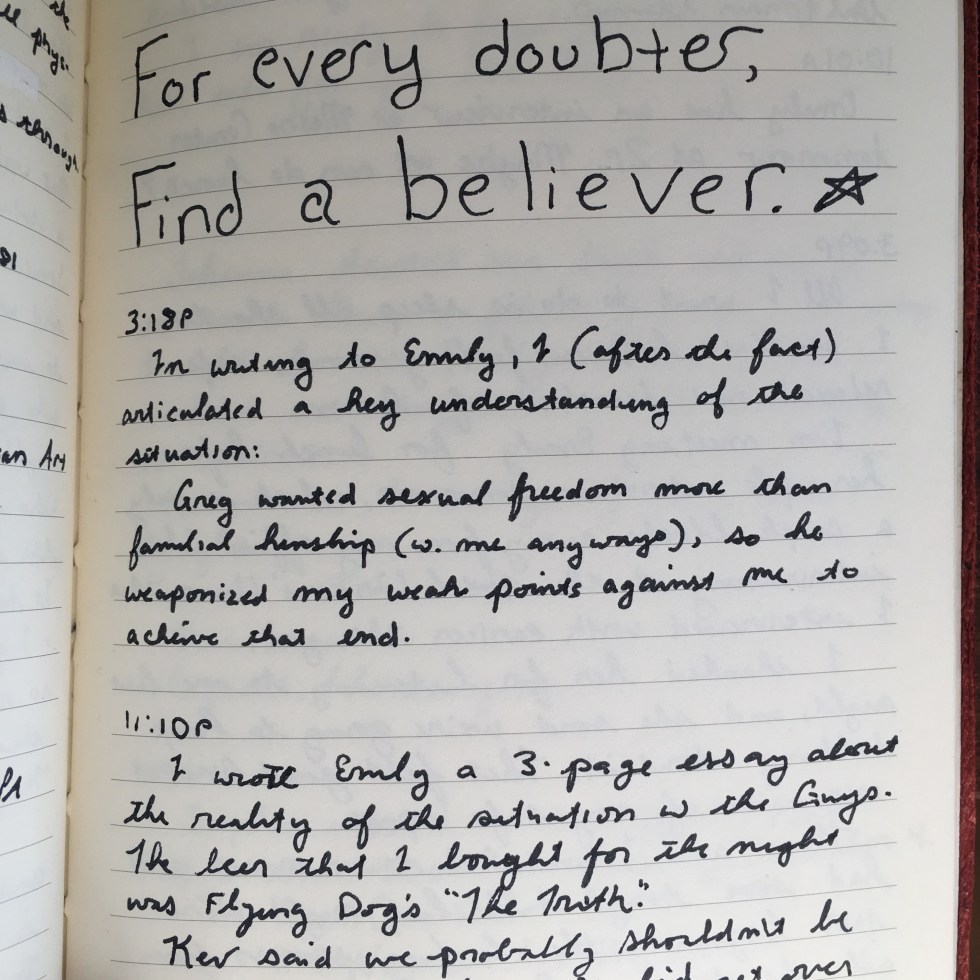 the
ll phys-
s through
81
an Art
For every doubter,
Find a believer. ☆
3:18P
In writing to Emily, I (after the fact)
articulated a key understanding of the
situation:
Greg wanted sexual freedom more than
familial kinship (w. me anyways), so he
weaponized my weak points against me to
achive that end.
11:10P
I wrote Emily a 3-page essay about
the reality of the situation w the Guys.
The beer that I bought for the night
was Flying Dog's "The Truth."
Kev said we probably shouldn't be
did not over